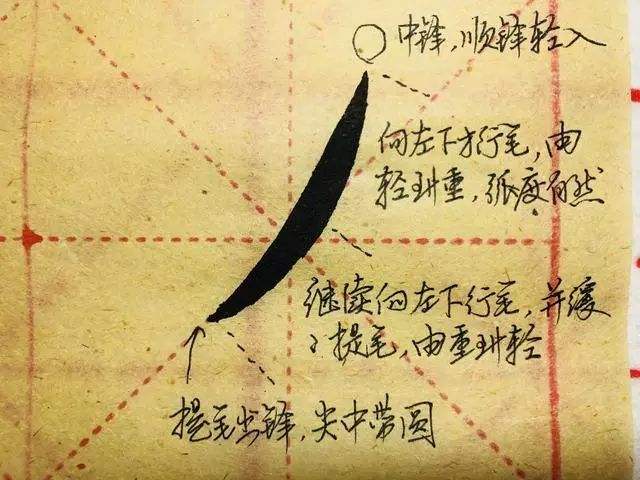 中锋，顺锋轻入
向左下方行笔，由
轻到重，弧度自然
继续向左下行笔，并缓
缓提笔，由重到轻
提笔出锋，尖中带圆